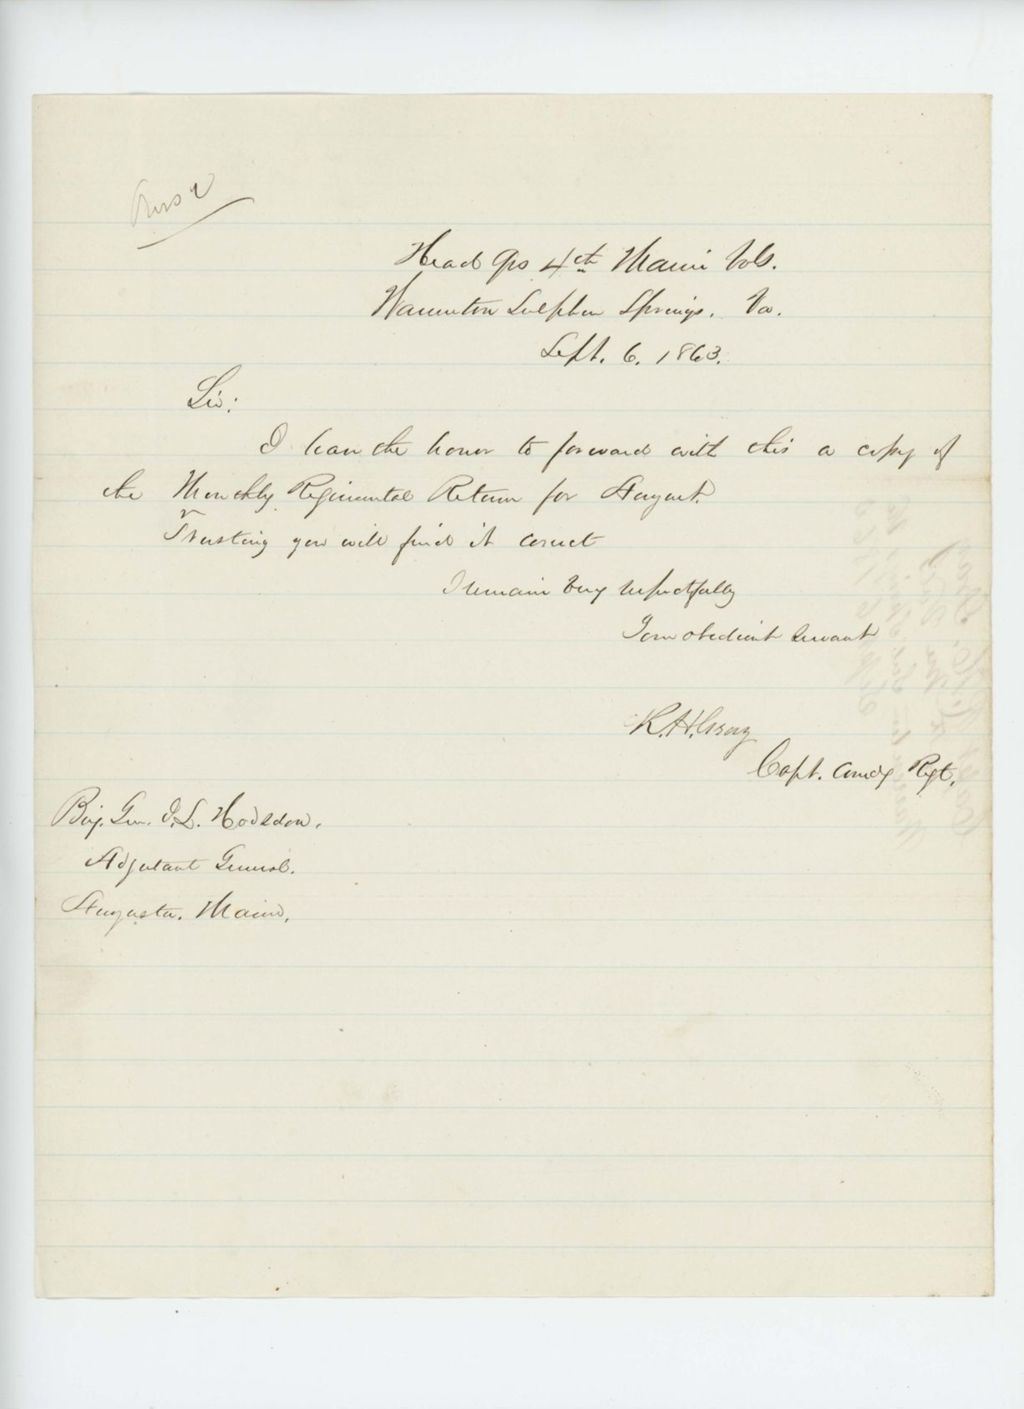 Head Qrs 4th Maine Vols.
Warrenton Sulphur Springs, Va.
Sept. 6. 1863.
Sir:
I have the honor to forward with this a copy of
the Monthly Regimental Return for August.
Trusting you will find it correct
I remain very respectfully
Your obedient servant
R.H. Gray
Capt. Comdg Regt.
Brig. Gen. J.L. Hodsdon,
Adjutant General.
Augusta. Maine.